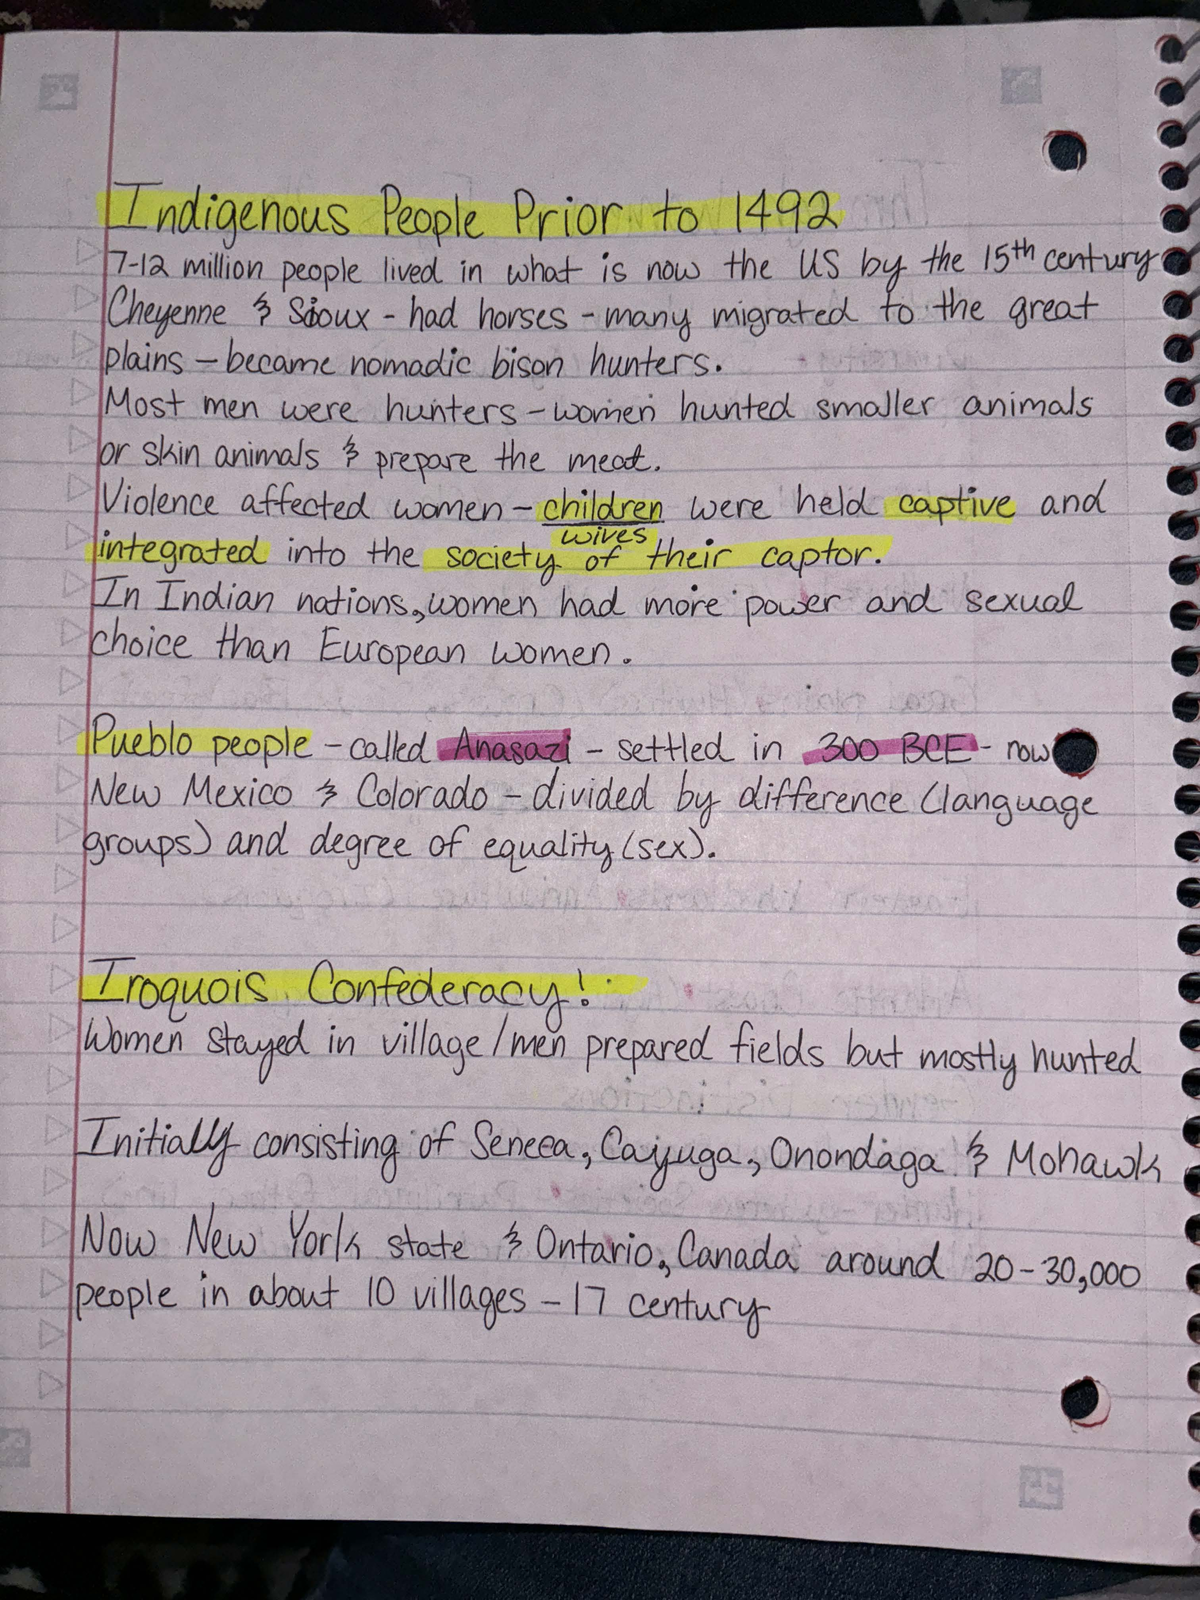 Indigenous People Prior to 1492
7-12 million people lived in what is now the US by the 15th century
Cheyenne & Sioux - had horses - many migrated to the great
plains - became nomadic bison hunters.
Most men were hunters - women hunted smaller animals
or skin animals & prepare the meat.
Violence affected women - children were held captive and
wives
integrated into the society of their captor.
In Indian nations, women had more power and sexual
choice than European women.
Pueblo people - called Anasazi - settled in 300 BCE - now
New Mexico & Colorado - divided by difference (language
groups) and degree of equality (sex).
Iroquois Confederacy!
Women stayed in village / men prepared fields but mostly hunted
Initially consisting of Seneca, Cayuga, Onondaga & Mohawk
Now New York state & Ontario, Canada around 20-30,000
people in about 10 villages - 17 century